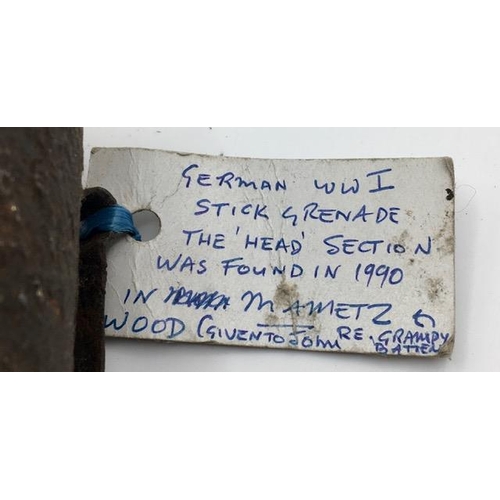 GERMAN WWI
STICK GRENADE
THE 'HEAD' SECTION
WAS FOUND IN 1990
IN MAMETZ
WOOD (GIVEN TO JOHN RE. GRAMPY
BATTEN